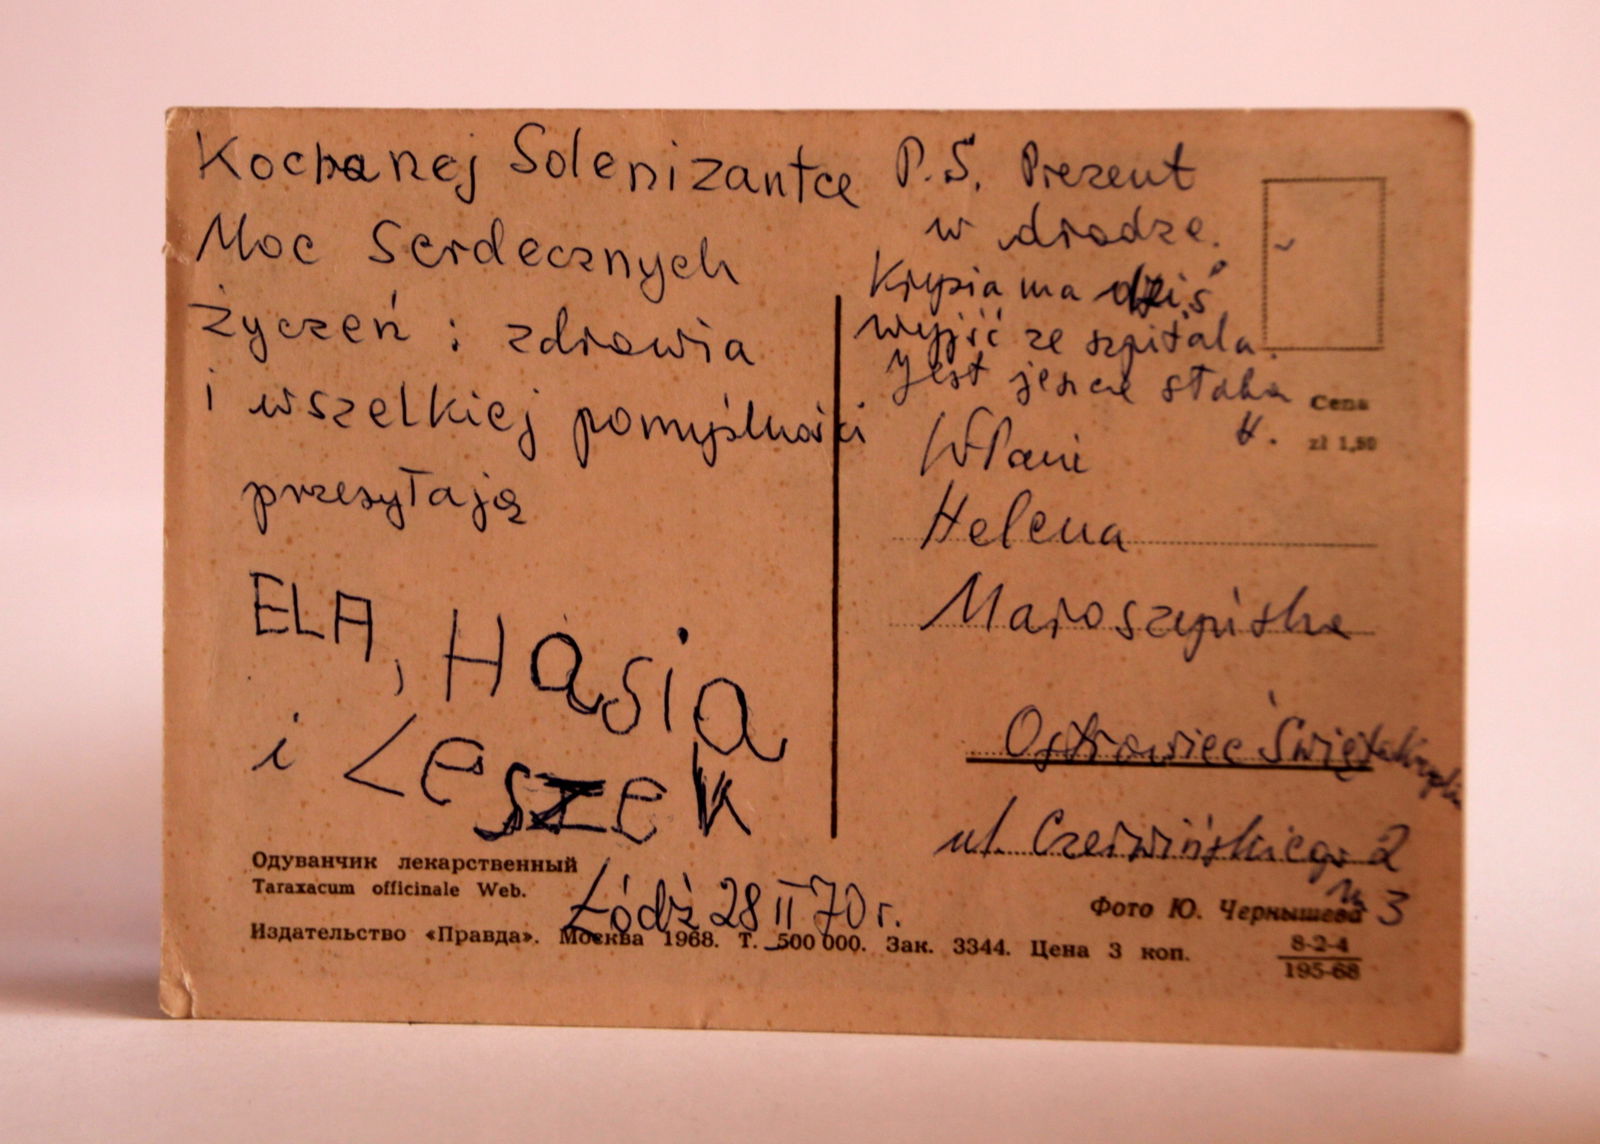 Kochanej Solenizantce
Moc Serdecznych
Życzeń : zdrowia
i wszelkiej pomyślności
przesyłają
ELA, Hasia
i Leszek
Łódź 28 II 70 r.
P.S. Prezent
w drodze.
Krysia ma dziś
wyjść ze szpitala.
Jest jeszcze słaba
H.
Cena
zł 1,50
WPani
Helena
Maroszyńska
Ostrowiec Świętokrzyski
ul. Czerwińskiego 2
m 3
Одуванчик лекарственный
Taraxacum officinale Web.
Фото Ю. Чернышева
Издательство «Правда». Москва 1968. Т. 500 000. Зак. 3344. Цена 3 коп.
8-2-4
195-68